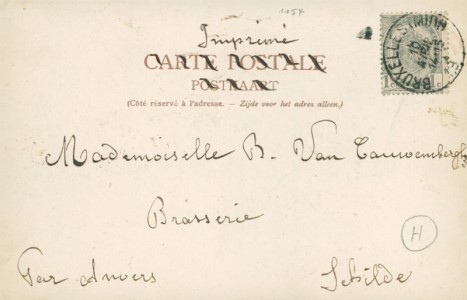 1157
Imprimé
CARTE POSTALE
POSTKAART
(Côté réservé à l'adresse. – Zijde voor het adres alleen.)
BRUXELLES (MIDI)
Mademoiselle B. Van Cauwembergh
Brasserie
H
Par Anvers Schilde